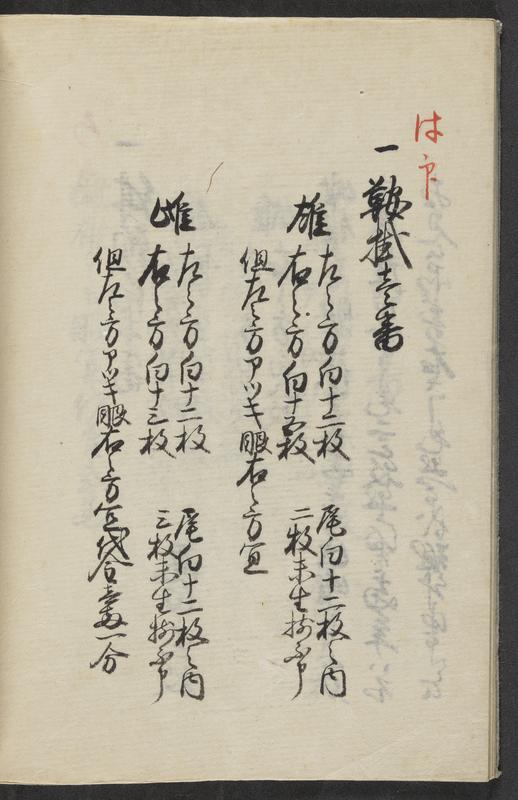 は印
一 鞍掛壱番
雄 左之方白十二枚 尾白十二枚之内
右之方白十五枚 二枚未生揃不申
但左之方アツキ眼右之方宜
雌 左之方白十二枚 尾白十二枚之内
右之方白十三枚 三枚未生揃不申
但左之方アツキ眼右之方宜 合 一分